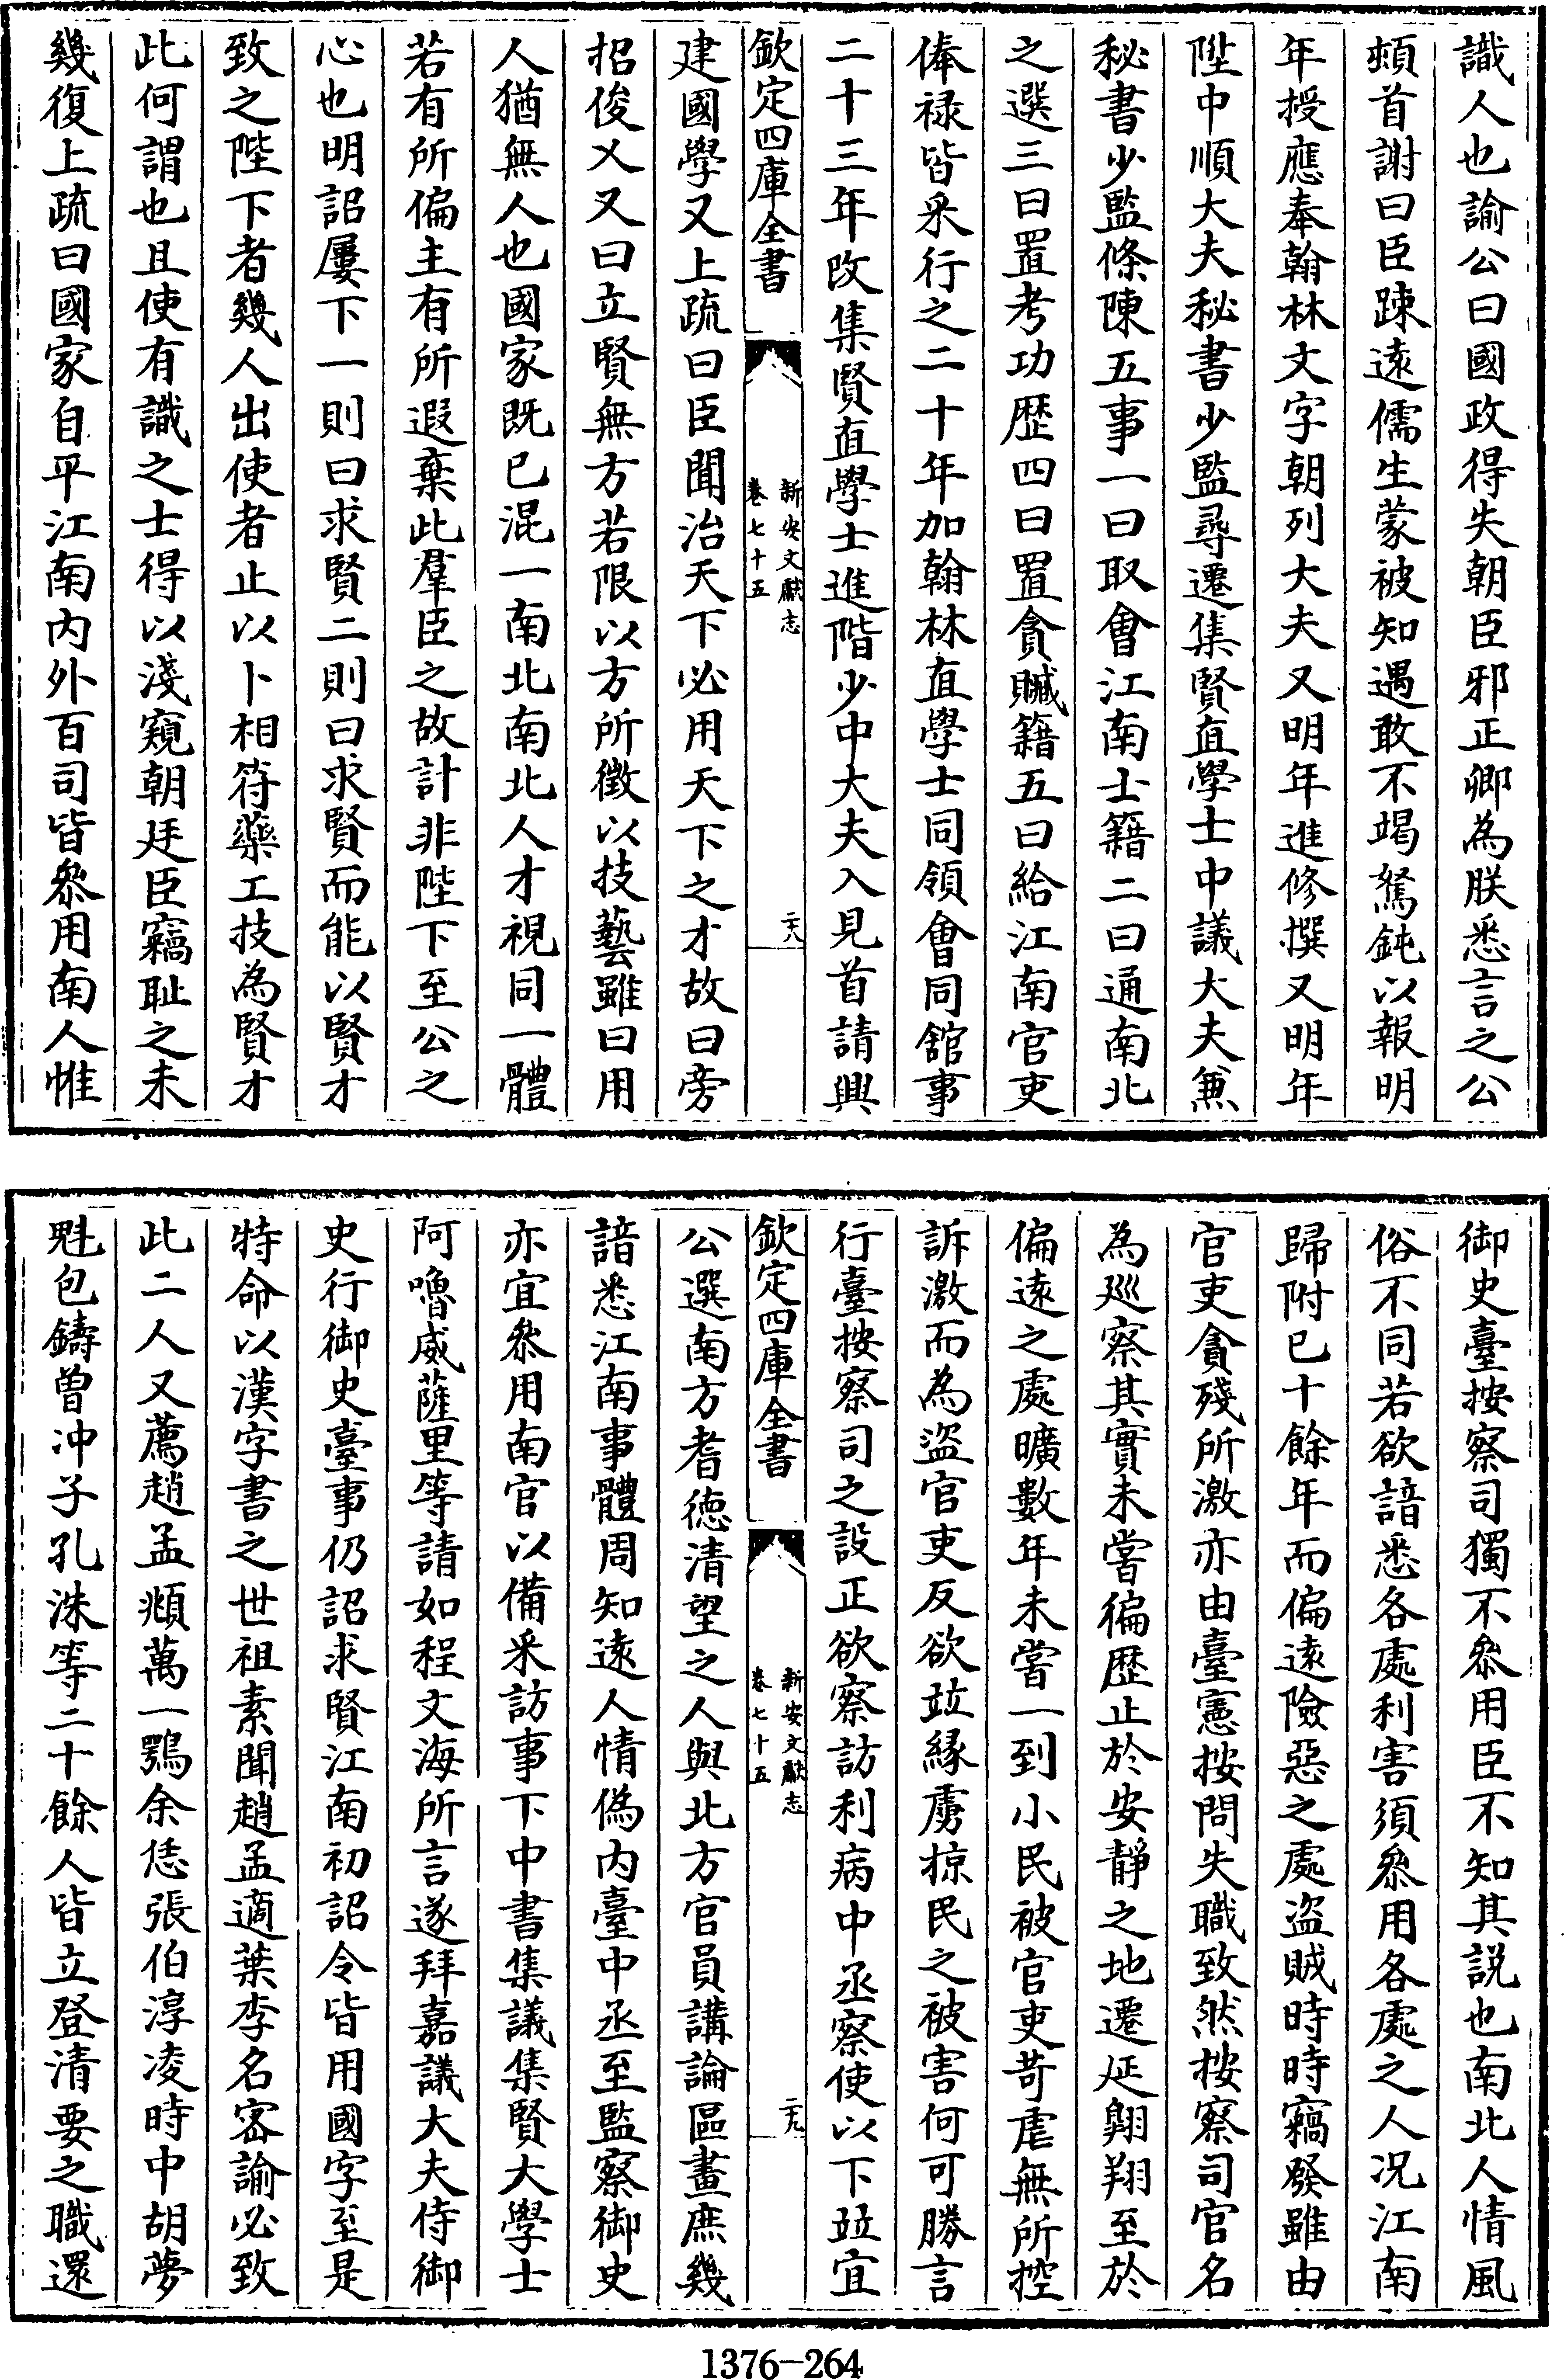 識人也諭公曰國政得失朝臣邪正卿為朕悉言之公
頓首謝曰臣踈逺儒生蒙被知遇敢不竭駑鈍以報明
年授應奉翰林文字朝列大夫又明年進修撰又明年
陞中順大夫秘書少監尋遷集賢直學士中議大夫兼
秘書少監條陳五事一曰取㑹江南士籍二曰通南北
之選三曰置考功歴四曰置貪贓籍五曰給江南官吏
俸禄皆采行之二十年加翰林直學士同領㑹同館事
二十三年改集賢直學士進階少中大夫入見首請興
欽定四庫全書
新安文獻志
卷七十五
二十八
建國學又上疏曰臣聞治天下必用天下之才故曰旁
招俊乂又曰立賢無方若限以方所徴以技藝雖曰用
人猶無人也國家既已混一南北南北人才視同一體
若有所偏主有所遐棄此羣臣之故計非陛下至公之
心也明詔屢下一則曰求賢二則曰求賢而能以賢才
致之陛下者幾人出使者止以卜相符藥工技為賢才
此何謂也且使有識之士得以淺窺朝廷臣竊耻之未
幾復上疏曰國家自平江南内外百司皆叅用南人惟
御史臺按察司獨不叅用臣不知其説也南北人情風
俗不同若欲諳悉各處利害須叅用各處之人况江南
歸附已十餘年而偏逺險惡之處盗賊時時竊發雖由
官吏貪殘所激亦由臺憲按問失職致然按察司官名
為廵察其實未嘗徧歴止於安靜之地遷延翺翔至於
偏逺之處曠數年未嘗一到小民被官吏苛虐無所控
訴激而為盜官吏反欲竝縁虜掠民之被害何可勝言
行臺按察司之設正欲察訪利病中丞察使以下竝宜
欽定四庫全書
新安文獻志
卷七十五
二十九
公選南方耆徳清望之人與北方官員講論區畫庶幾
諳悉江南事體周知逺人情偽内臺中丞至監察御史
亦宜叅用南官以備采訪事下中書集議集賢大學士
阿嚕威薩里等請如程文海所言遂拜嘉議大夫侍御
史行御史臺事仍詔求賢江南初詔令皆用國字至是
特命以漢字書之世祖素聞趙孟適葉李名宻諭必致
此二人又薦趙孟頫萬一鶚余恁張伯淳凌時中胡夢
魁包鑄曾冲子孔洙等二十餘人皆立登清要之職還
1376-264